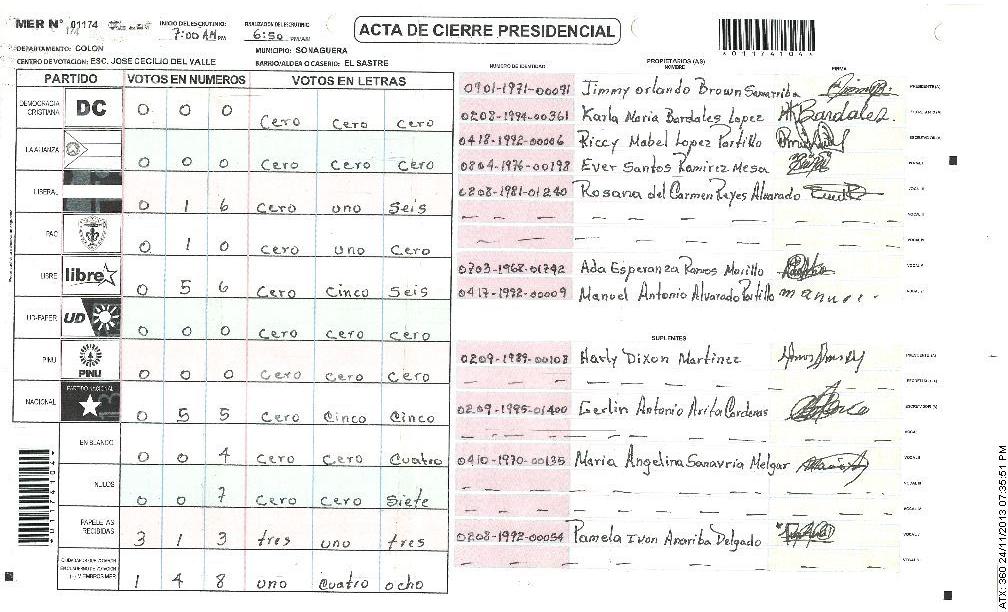 MER N° 01174
INICIO DEL ESCRUTINIO
7:00 AM PM
FINALIZACION DEL ESCRUTINIO
6:50 PM/AM
ACTA DE CIERRE PRESIDENCIAL
*01174104*
DEPARTAMENTO: COLON
MUNICIPIO: SONAGUERA
CENTRO DE VOTACION: ESC. JOSE CECILIO DEL VALLE
BARRIO/ALDEA O CASERIO: EL SASTRE
PARTIDO VOTOS EN NUMEROS VOTOS EN LETRAS
DEMOCRACIA CRISTIANA DC 0 0 0 Cero Cero Cero
LA ALIANZA 0 0 0 Cero Cero Cero
LIBERAL 0 1 6 Cero uno Seis
PAC 0 1 0 Cero uno Cero
LIBRE libre 0 5 6 Cero Cinco Seis
UD-FAPER UD 0 0 0 Cero cero cero
PINU PINU 0 0 0 Cero Cero Cero
NACIONAL PARTIDO NACIONAL 0 5 5 Cero Cinco Cinco
EN BLANCO 0 0 4 Cero Cero Cuatro
NULOS 0 0 7 Cero Cero Siete
PAPELETAS RECIBIDAS 3 1 3 tres uno tres
1 4 8 uno Cuatro ocho
*01174104*
NUMERO DE IDENTIDAD
PROPIETARIOS (AS)
NOMBRE
FIRMA
0901-1971-00091 Jimmy orlando Brown Samarriba PRESIDENTE(A)
0208-1994-00361 Karla Maria Bardales Lopez KBardales.
0418-1992-00006 Riccy Mabel Lopez Portillo
0804-1976-00198 Ever Santos Ramirez Mesa
0208-1981-01240 Rosaria del Carmen Reyes Alvarado
0703-1968-01742 Ada Esperanza Ramos Morillo
0417-1992-00009 Manuel Antonio Alvarado Portillo manuel
SUPLENTES
0209-1989-00108 Harly Dixon Martinez
0209-1995-01400 Gerlin Antonio Arita Cardenas
0410-1970-00135 Maria Angelina Sanavria Melgar
0208-1992-00054 Pamela Ivon Anariba Delgado
ATX: 360 24/11/2013 07:35:51 PM